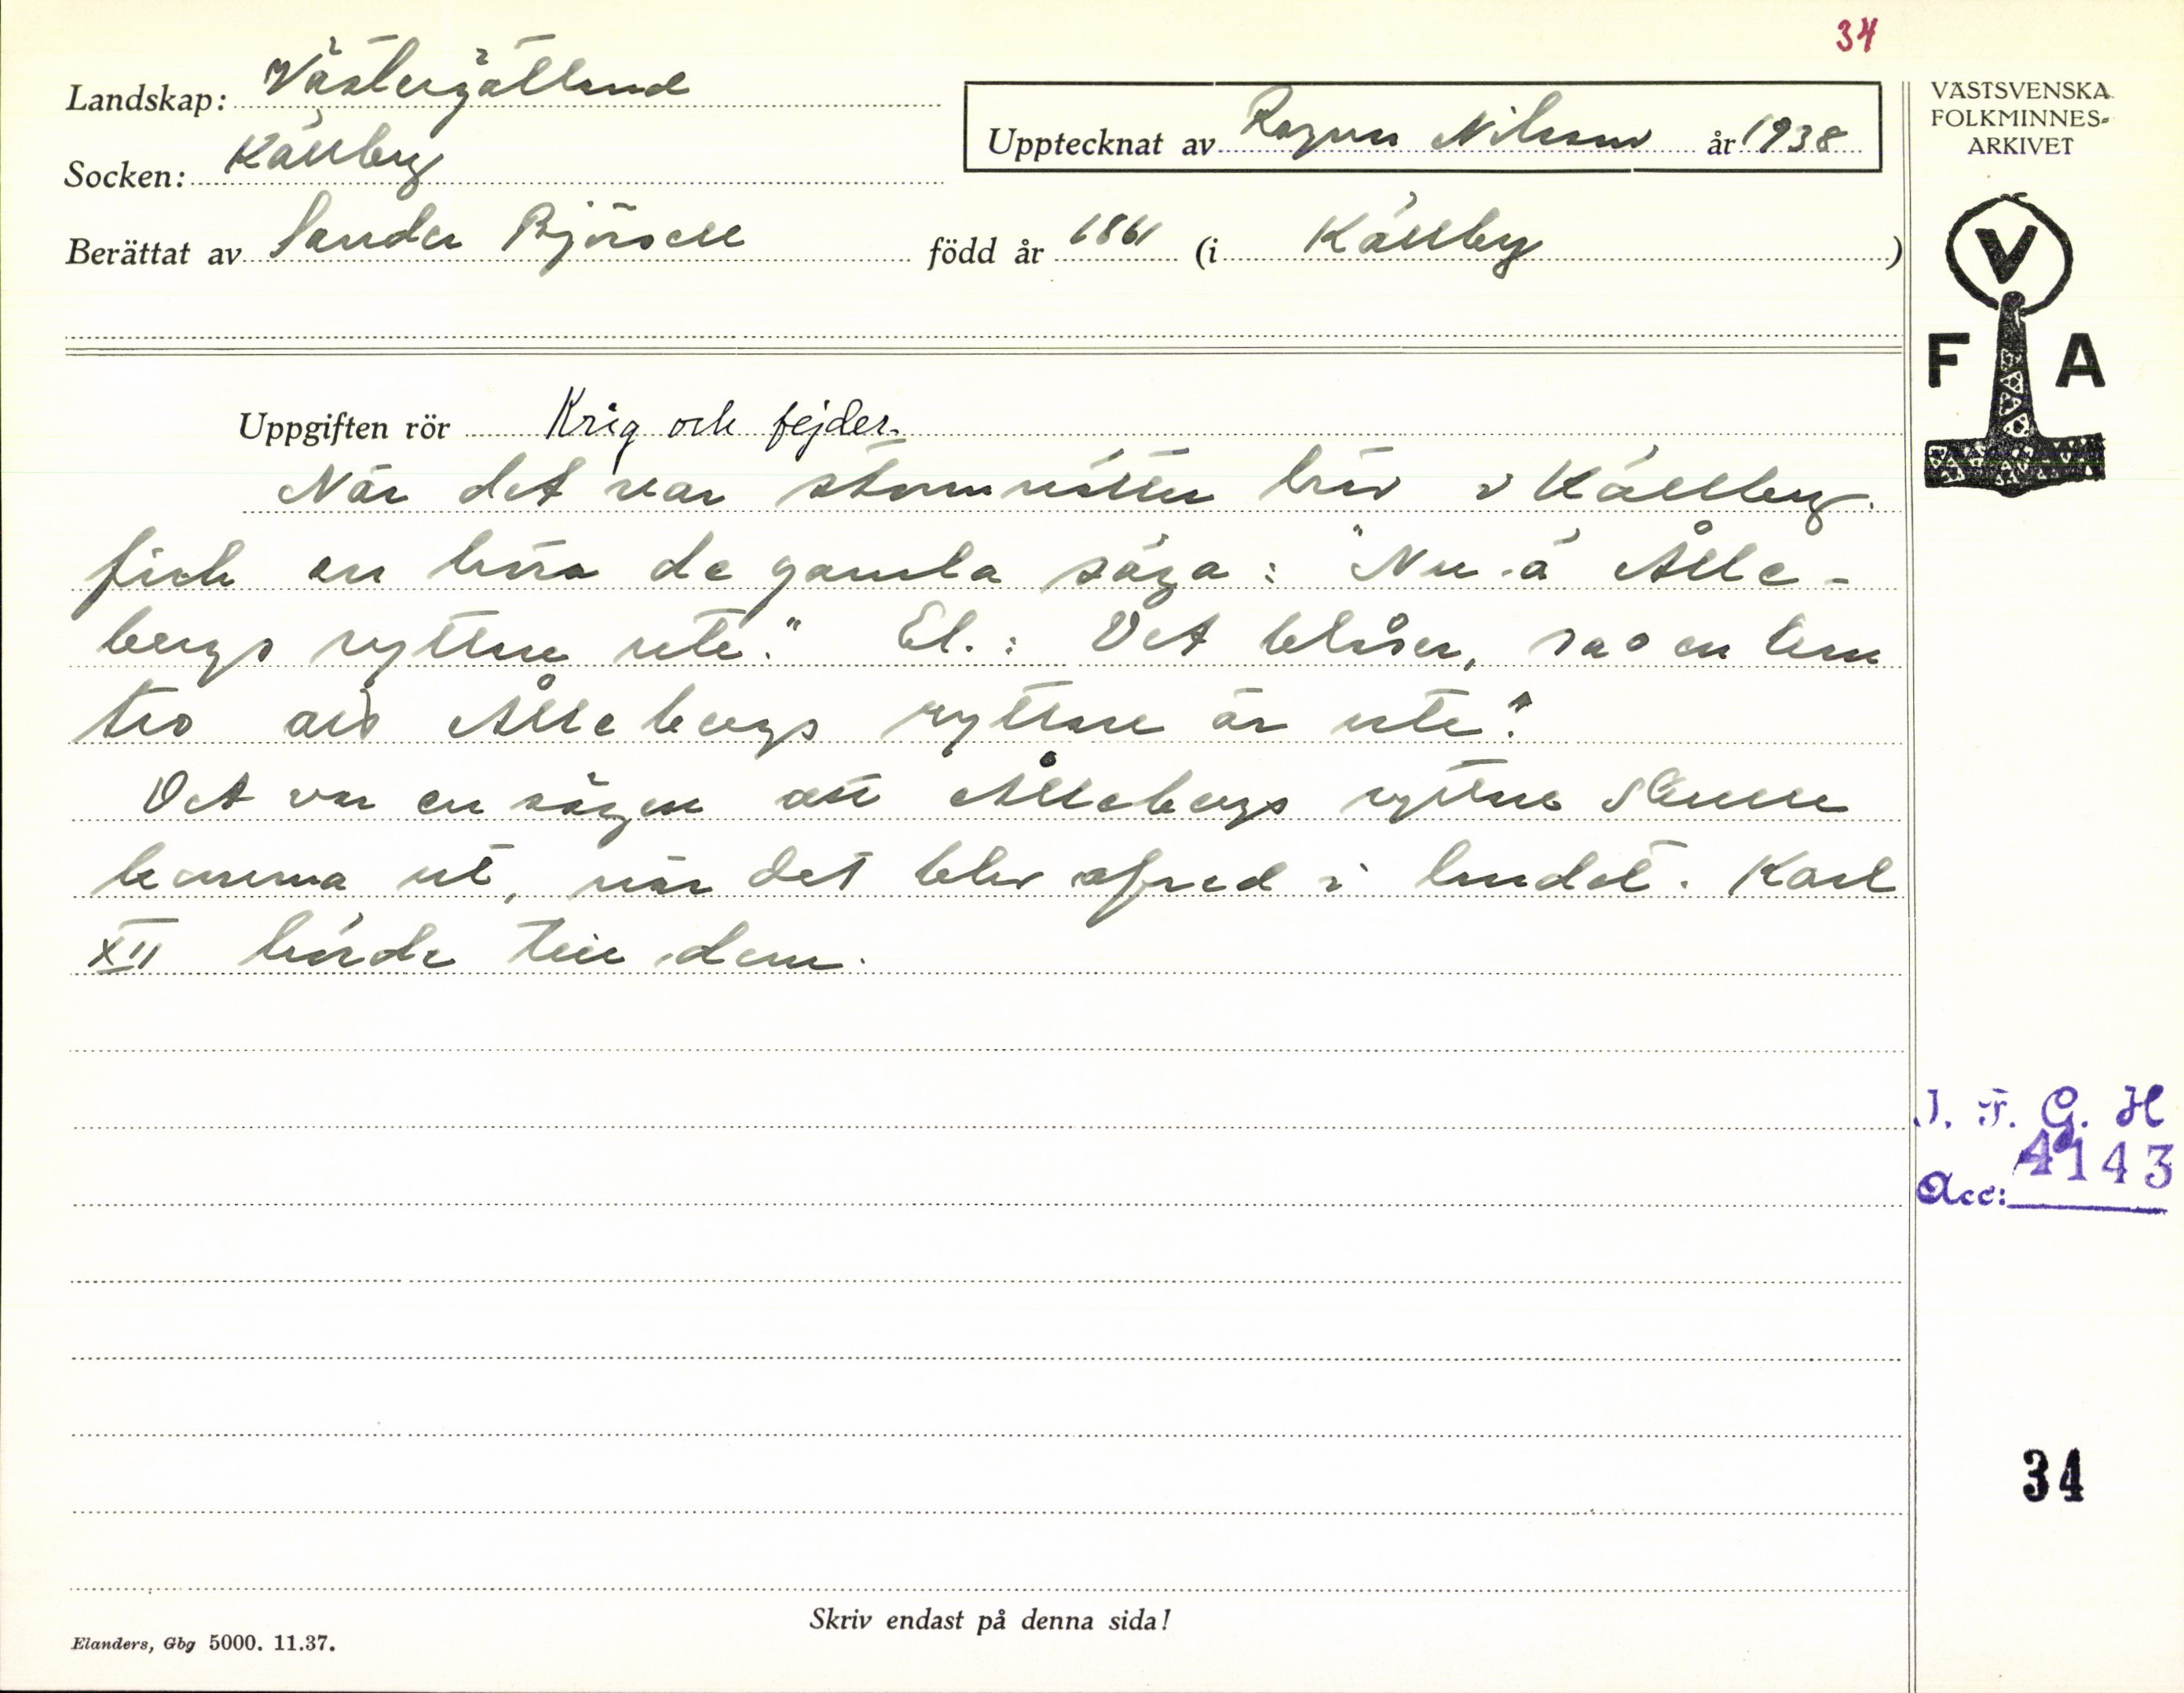 34
Landskap: Västergötland
Socken: Källby
Upptecknat av Ragnar Nilsson år 1938
VÄSTSVENSKA
FOLKMINNES-
ARKIVET
Berättat av Sander Björsell född år 1861 (i Källby)
V
F A
Uppgiften rör Krig och fejder.
När det var storm nätter här i Källby.
fick en höra de gamla säga: "Nu ä Ålle-
bergs ryttare ute." El.: Det blåser, så en kan
tro att Ållebergs ryttare är ute."
Det var en sägen att Ållebergs ryttare skulle
komma ut, när det blev ofred i landet. Karl
XII hörde till dem.
I. F. G. H
Acc: 4143
34
Skriv endast på denna sida!
Elanders, Gbg 5000. 11.37.